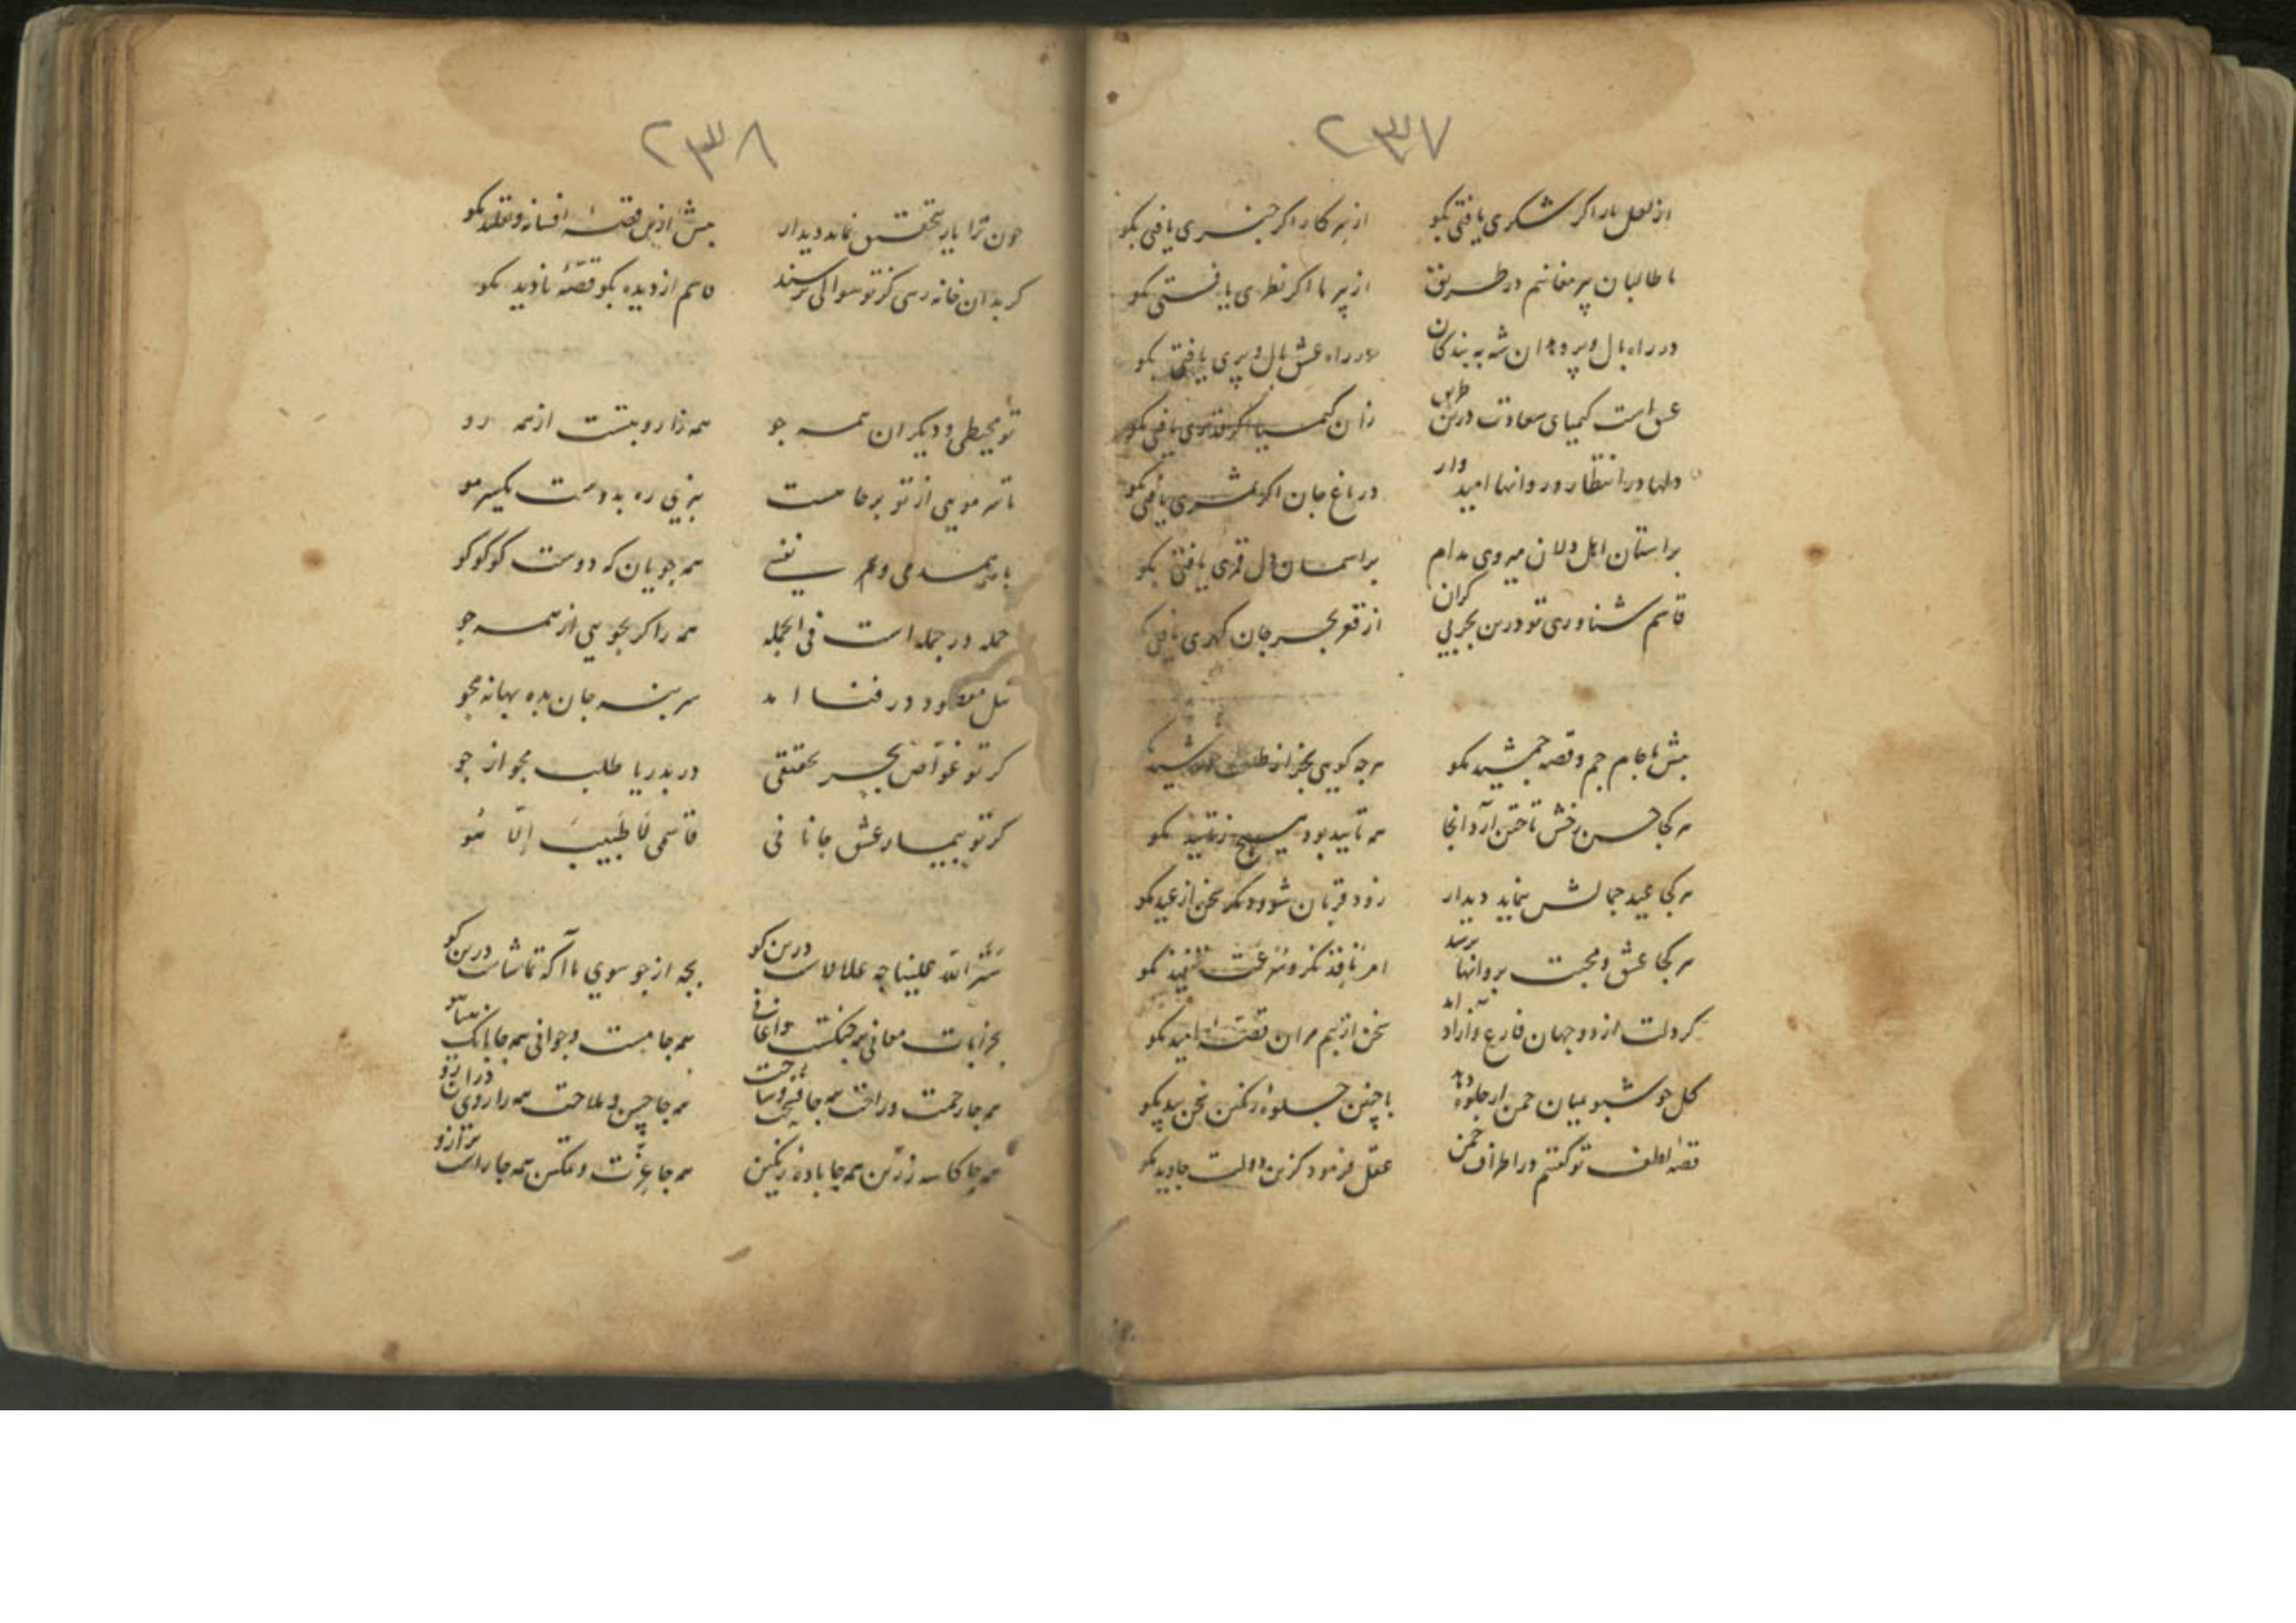 ۲۳۷
از لعل یار اگر شکری یافتی بگو از سر کار اگر خبری یافتی بگو
با طالبان پیر مغانیم در طریق از پیر ما اگر نظری یافتی بگو
در راه بال و پر شه به بندکان در راه عشق بال و پری یافتی بگو
عشق است کیمیای سعادت درین طریق زان کیمیا اگر قدری یافتی بگو
دلها در انتظار و روانها امیدوار در باغ جان اگر ثمری یافتی بگو
بر استان اهل دلان میروی مدام بر اسمان دل قمری یافتی بگو
قاسم شناوری تو درین بحر بی کران از قعر بحر جان کهری یافتی بگو
پیش ما جام جم و قصه جمشید مکو هرجه کویی بجز از طلعت خورشید مکو
هر کجا حسن رخش تاختن آرد آنجا همه تایید بود هیچ ز تایید مکو
هر کجا عید جمالش بنماید دیدار زود قربان شو و دیکر سخن از عید مکو
هر کجا عشق و محبت بروانها برسد امر نافذ نکر و سرعت تنفیذ مکو
کر دلت از دو جهان فارغ و آزاد آمد سخن از بیم مران قصه امید مکو
کل خوشبو میان چمن ار جلوه دهد با چنین جلوه رنکین سخن بید مکو
قصه لطف تو کفتم در اطراف چمن عقل فرمود کزین دولت جاوید مکو
۲۳۸
چون ترا یار بتحقیق نماید دیدار بیش ازین قصه افسانه و تقلید مکو
کر بدان خانه رسی کز تو سوالی پرسند قاسم از دیده بکو قصه نادید مکو
تو محیطی و دیکران همه جو همه را روبتست از همه رو
تا سر مویی از تو بر جا هست نبری ره بدوست یکسر مو
با همدمی و هم نفسی همه جویان که دوست کو کو کو
جمله در جمله است فی الجمله همه را کر بجویی از همه جو
نیل مقصود در فنا امد سر بنه جان بده بهانه مجو
کر تو غواص بحر تحقیقی در بدریا طلب مجو از جو
کر تو بیمار عشق جانانی قاسمی لا طبیب الا هو
ستر الله علینا چه علالاست درین کو بجه از جو سوی ما آ که تماشاست درین کو
بخرابات معانی همه چنکست و اغانی همه جا مست و جوانی همه جا بانک
همه جا رحمت و راحت همه جا همه جا حسن و ملاحت همه را روی درآن رو
همه جا کاسه زرین همه جا باده رنکین همه جا عزت و تمکین همه جا راست ترازو